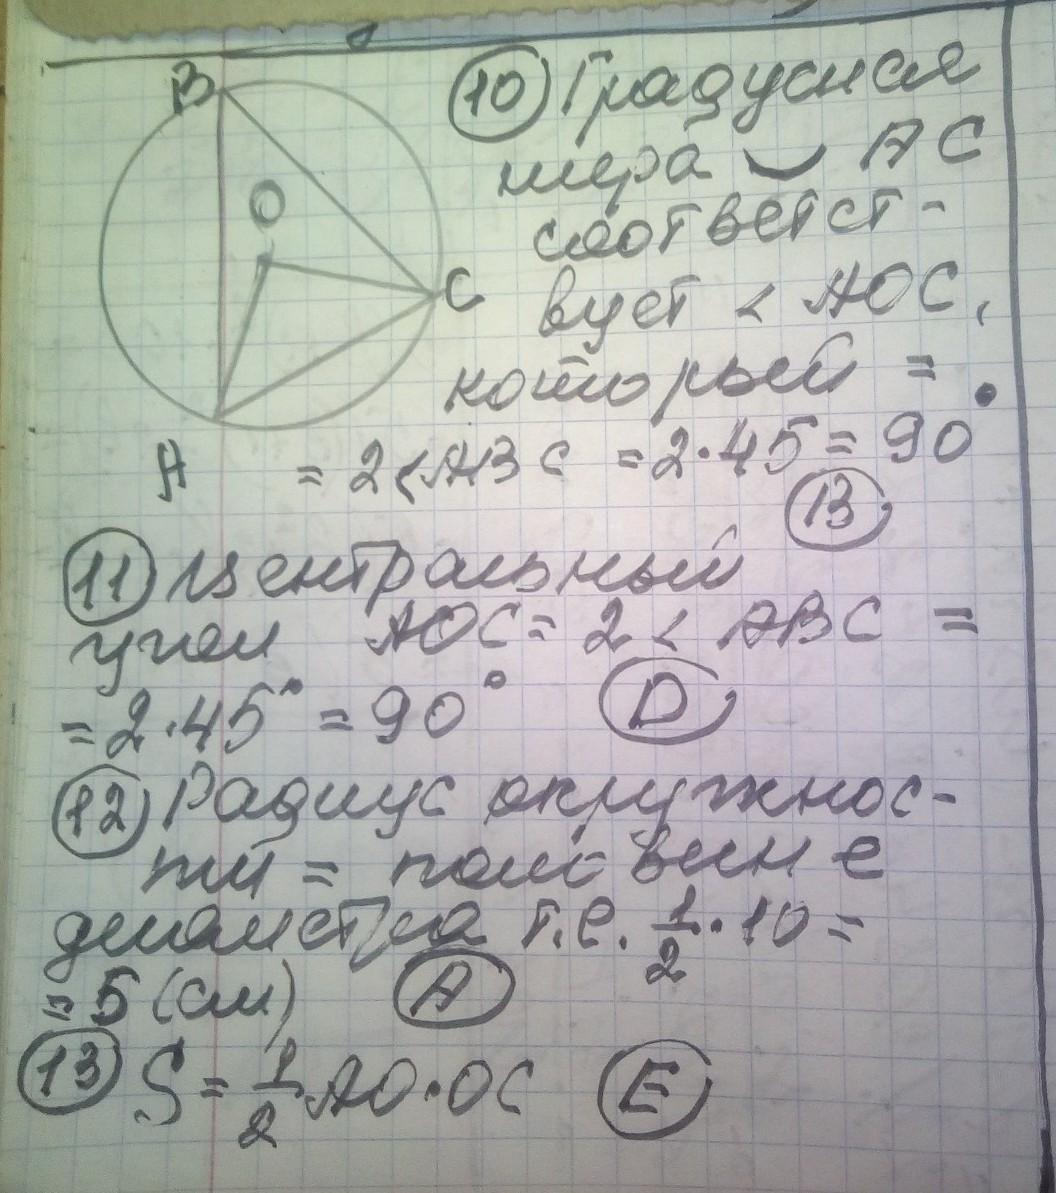 B
O
C
A
10 Градусная
мера ◡ AC
соответст-
вует < AOC,
который =
= 2 < ABC = 2·45 = 90°
B
11 Центральный
угол AOC = 2 < ABC =
= 2·45° = 90° D
12 Радиус окружнос-
ти = половине
диаметра т.е. 1/2 · 10 =
= 5 (см) A
13 S = 1/2 AO·OC E